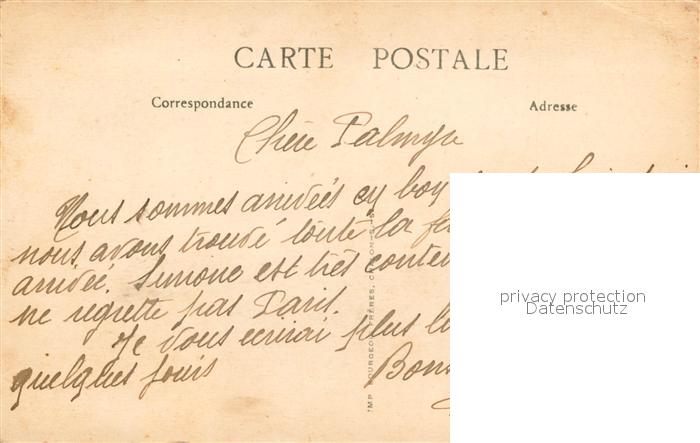 CARTE POSTALE
Correspondance Adresse
Chère Palmyre
Nous sommes arrivés
nous avons trouvé toute la
arrivée. Simone est très
ne regrette pas Paris.
Je vous écrirai plus
quelques jours
IMP. BOURGEOIS FRÈRES,
privacy protection
Datenschutz